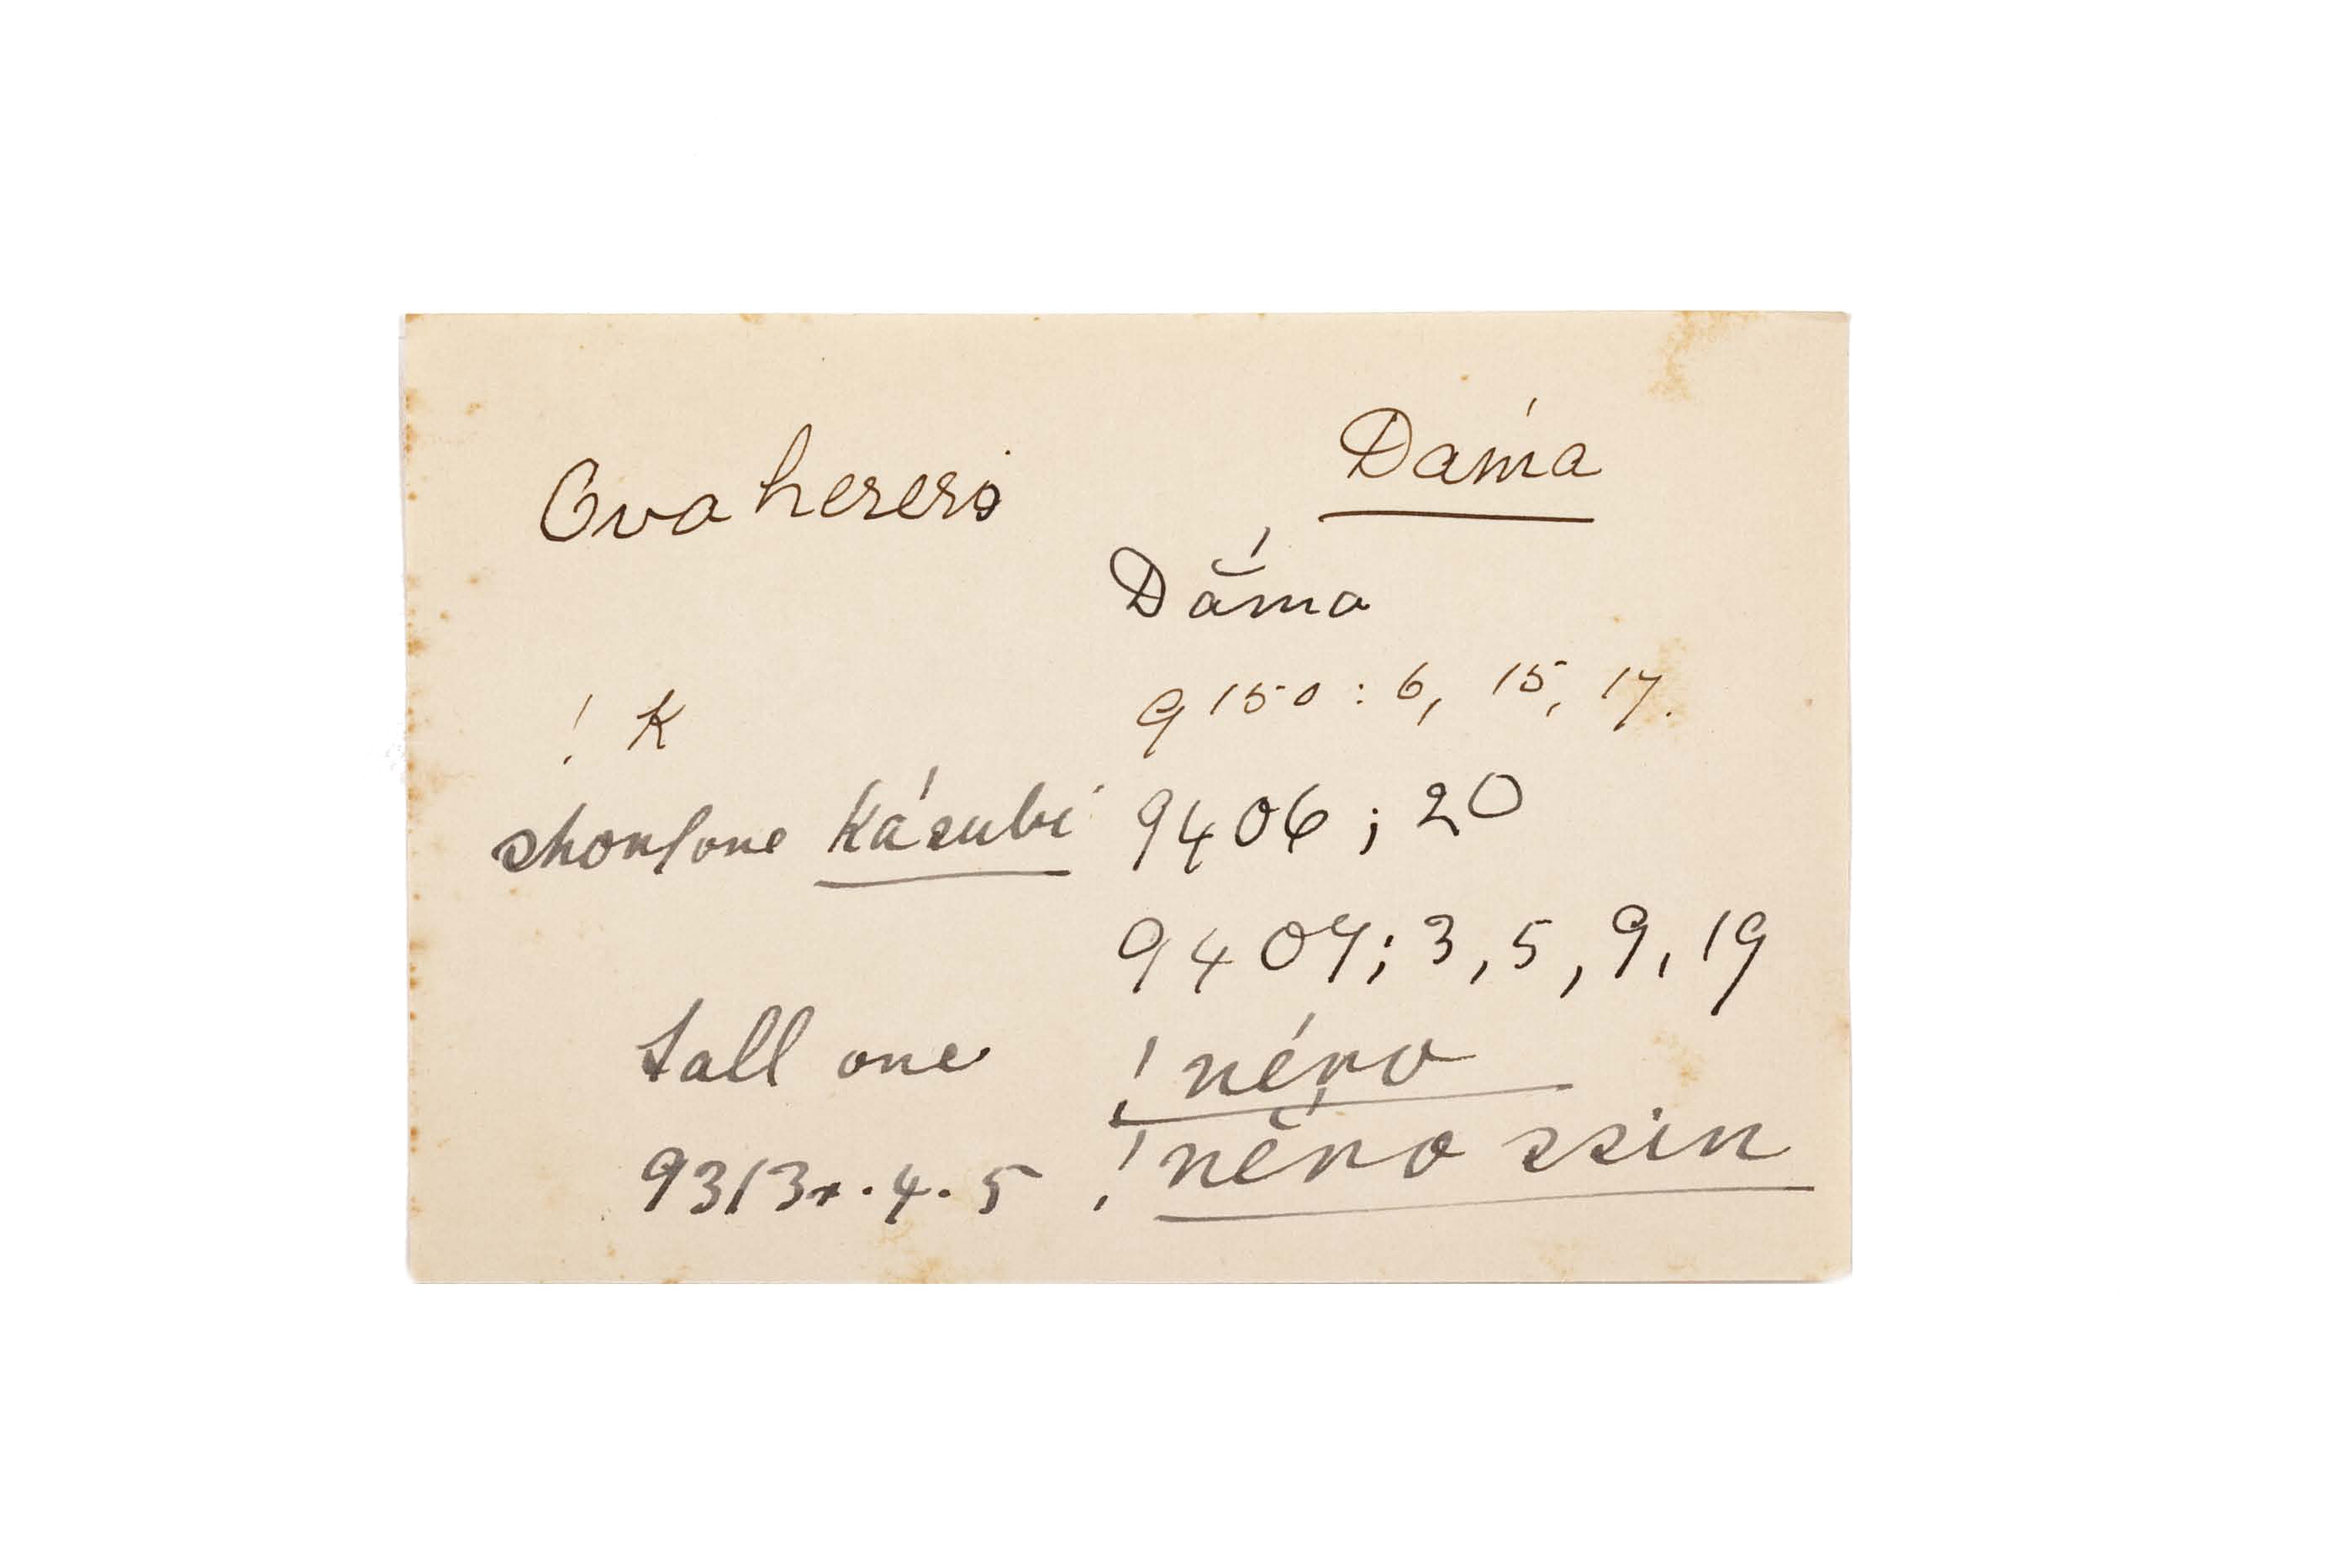 Ovaherero Dam̍a
Dắma
! K 9150 : 6, 15, 17.
short one Kásubi 9406 ; 20
9407; 3, 5, 9, 19
tall one ! néno
9313x. 4. 5 ! nĕ́no ssin